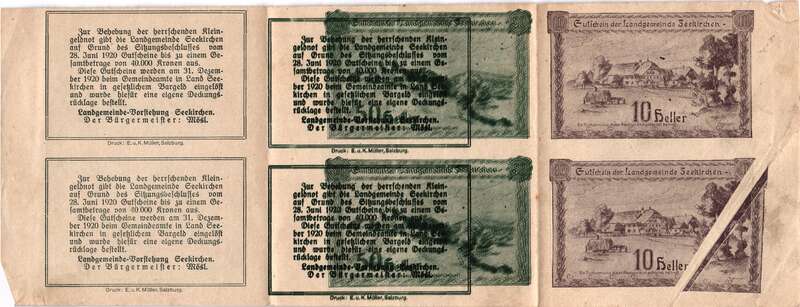 Zur Behebung der herrschenden Klein-
geldnot gibt die Landgemeinde Seekirchen
auf Grund des Sitzungsbeschlusses vom
28. Juni 1920 Gutscheine bis zu einem Ge-
samtbetrage von 40.000 Kronen aus.
Diese Gutscheine werden am 31. Dezem-
ber 1920 beim Gemeindeamte in Land See-
kirchen in gesetzlichem Bargeld eingelöst
und wurde hiefür eine eigene Deckungs-
rücklage bestellt.
Landgemeinde-Vorstehung Seekirchen.
Der Bürgermeister: Mösl.
Druck: E. u. K. Müller, Salzburg.
Zur Behebung der herrschenden Klein-
geldnot gibt die Landgemeinde Seekirchen
auf Grund des Sitzungsbeschlusses vom
28. Juni 1920 Gutscheine bis zu einem Ge-
samtbetrage von 40.000 Kronen aus.
Diese Gutscheine werden am 31. Dezem-
ber 1920 beim Gemeindeamte in Land See-
kirchen in gesetzlichem Bargeld eingelöst
und wurde hiefür eine eigene Deckungs-
rücklage bestellt.
Landgemeinde-Vorstehung Seekirchen.
Der Bürgermeister: Mösl.
Druck: E. u. K. Müller, Salzburg.
50
Gutschein der Landgemeinde Seekirchen
10 Heller
Zur Behebung der herrschenden Klein-
geldnot gibt die Landgemeinde Seekirchen
auf Grund des Sitzungsbeschlusses vom
28. Juni 1920 Gutscheine bis zu einem Ge-
samtbetrage von 40.000 Kronen aus.
Diese Gutscheine werden am 31. Dezem-
ber 1920 beim Gemeindeamte in Land See-
kirchen in gesetzlichem Bargeld eingelöst
und wurde hiefür eine eigene Deckungs-
rücklage bestellt.
Landgemeinde-Vorstehung Seekirchen.
Der Bürgermeister: Mösl.
Druck: E. u. K. Müller, Salzburg.
Zur Behebung der herrschenden Klein-
geldnot gibt die Landgemeinde Seekirchen
auf Grund des Sitzungsbeschlusses vom
28. Juni 1920 Gutscheine bis zu einem Ge-
samtbetrage von 40.000 Kronen aus.
Diese Gutscheine werden am 31. Dezem-
ber 1920 beim Gemeindeamte in Land See-
kirchen in gesetzlichem Bargeld eingelöst
und wurde hiefür eine eigene Deckungs-
rücklage bestellt.
Landgemeinde-Vorstehung Seekirchen.
Der Bürgermeister: Mösl.
Druck: E. u. K. Müller, Salzburg.
50
Gutschein der Landgemeinde Seekirchen
10 Heller